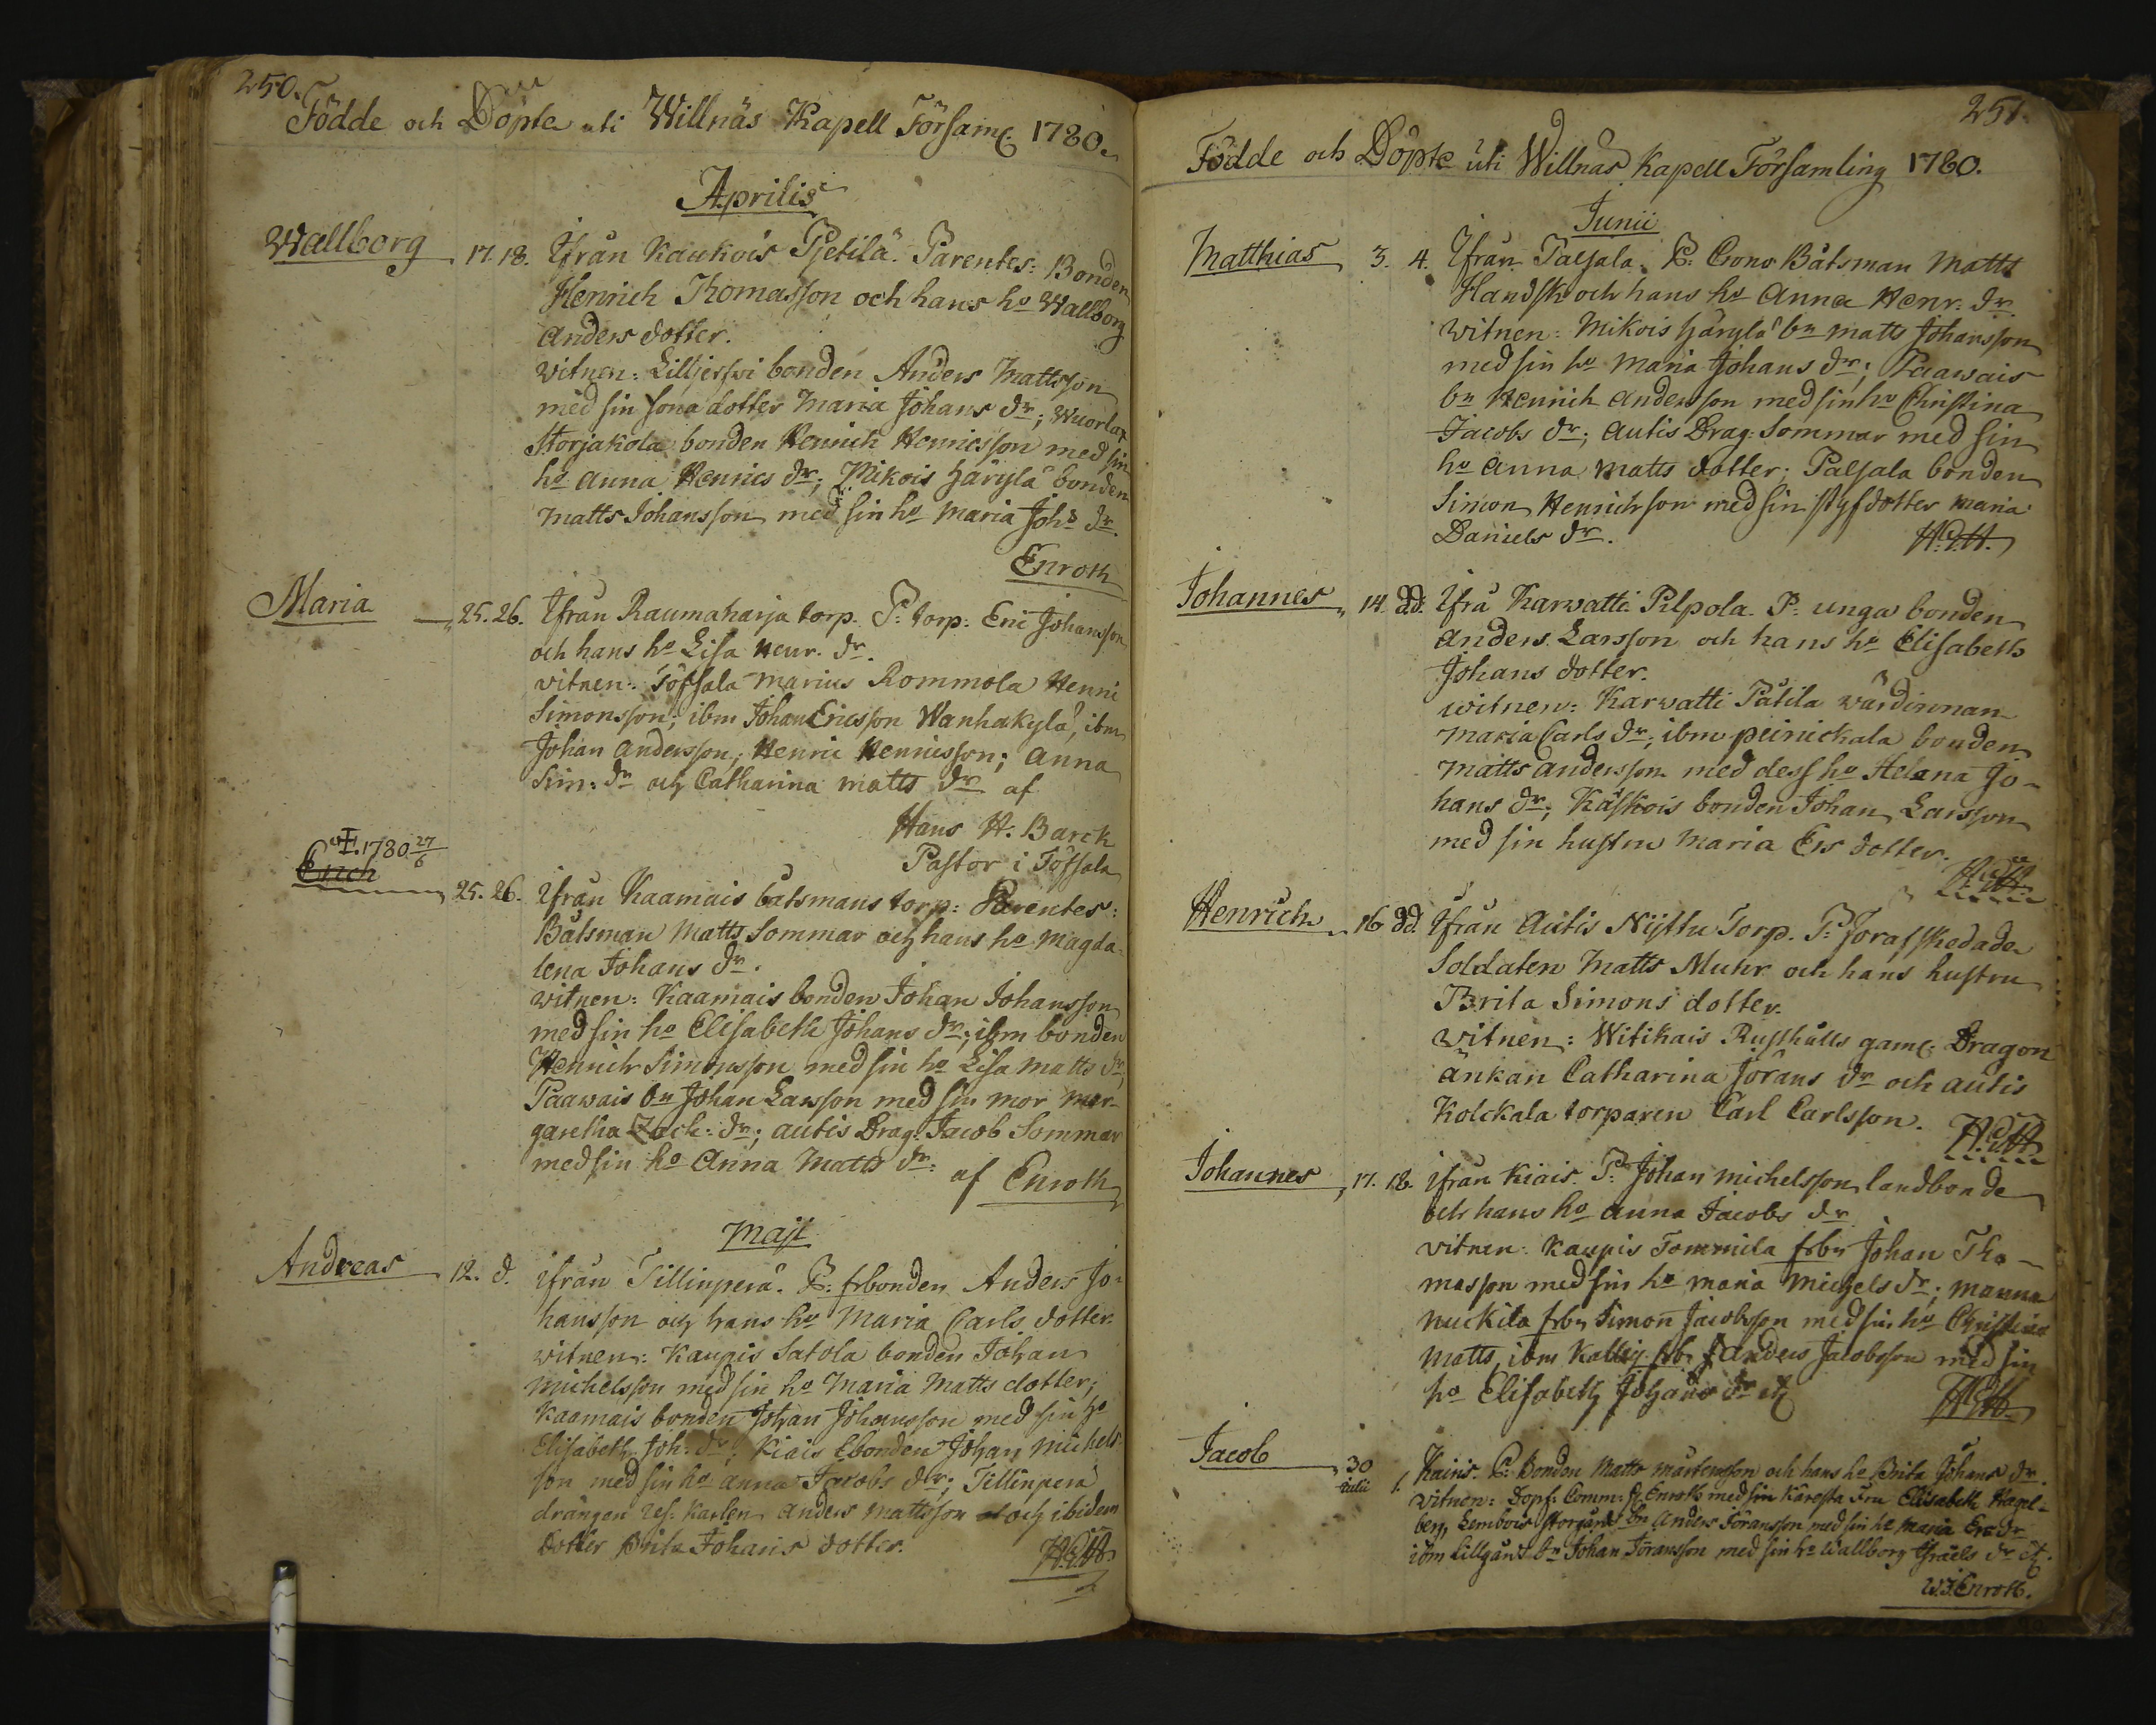 250.
Födde och Döpte uti Willnäs Kapell Församl. 1780.
Aprilis
Wallborg 17. 18. Ifrån Kaukois Pjetilä. Parentes: Bonden
Henrich Thomasson och hans ho Wallborg
Anders dotter.
Vitnen: Lilljerssi bonden Anders Mattsson
med sin sona dotter Maria Johans dr; Wuorlax
Storjakola bonden Henrich Henricsson med sin
ho Anna Henrics dr; Mikois Häryla bonden
Matts Johansson med sin ho Maria Johs dr.
Enroth
Maria 25. 26. Ifrån Raumaharja torp. P: torp: Eric Johansson
och hans ho Lisa Henr. dr.
vitnen: Töfsala Marius Rommola Henric
Simonsson; ibm Johan Ericsson Wanhakylä, ibm
Johan Andersson; Henric Henricsson; Anna
Sim: dr och Catharina Matts dr af
Hans H. Barck
Pastor i Töfsala
1780 27/6
Erich 25. 26. Ifrån Kaamais båtsmans torp: Parentes:
Båtsman Matts Sommar och hans ho Magda-
lena Johans dr.
vitnen: Kaamais bonden Johan Johansson
med sin ho Elisabeth Johans dr; ibm bonden
Henrich Simonsson med sin ho Lisa Matts dr;
Paawais bn Johan Larsson med sin mor Mar-
garetha Zach: dr; Autis Drag: Jacob Sommar
med sin ho Anna Matts dr:
af Enroth
Maji
Andreas 12. d. ifrån Tillinperä. P: frbonden Anders Jo-
hansson och hans ho Maria Carls dotter.
witnen: Kaupis Satola bonden Johan
Michelsson med sin ho Maria Matts dotter;
Kaamais bonden Johan Johansson med sin ho
Elisabeth Joh: dr; Kiais Lbonden Johan Michels-
son med sin ho Anna Jacobs dr; Tillinperä
drängen res. Karlen Anders Mattsson och ibidem
dotter Brita Johans dotter.
251.
Födde och Döpte uti Willnäs Kapell Församling 1780.
Junii
Matthias 3. 4. Ifrån Palsala. P: Crono Båtsman Matts
Handsk och hans ho Anna Henr: dr.
witnen: Mikois Häryla bn Matts Johansson
med sin ho Maria Johans dr; Paawais
bn Henrich Andersson med sin ho Christina
Jacobs dr; Autis Drag: Sommar med sin
ho Anna Matts dotter; Palsala bonden
Simon Henrichson med sin styfdotter Maria
Daniels dr.
Johannes 14. dd. Ifrå Karvatti Pilpola. P: unga bonden
Anders Larsson och hans ho Elisabeth
Johans dotter.
witnen: Karvatti Pätila wärdinnan
Maria Carls dr; ibm peinickala bonden
Matts Andersson med dess ho Helena Jo-
hans dr; Käskois bonden Johan Larsson
med sin hustru Maria Ers dotter.
Henrich 16 dd. Ifrån Autis Nijttu Torp. P: förafskedade
Soldaten Matts Muhr och hans hustru
Brita Simons dotter.
witnen: Witikais Rusthålls gaml: Dragon
änkan Catharina Jörans dr och Autis
Kolckala torparen Carl Carlsson.
Johannes 17. 18. ifrån Kiais. P: Johan Michelsson landbonde
och hans ho Anna Jacobs dr
vitnen: Kaupis Tommila frbn Johan Tho-
masson med sin ho Maria Michels dr; Manna
Nuckila frbn Simon Jacobsson med sin ho Christina
Matts, ibm Kallig frbn Anders Jacobsson med sin
ho Elisabeth Johans dr etc
Jacob 30 1. Kairis. P: Bonden Matts Mårtensson och hans ho Brita Johans dr.
Julii witnen: Dopf: Comm: Enroth med sin Käresta Fru Elisabeth Hagel-
berg, Lembois Storgårds bn Anders Jöransson med sin ho Maria Ers dr
ibm Lillgårds bn Johan Jöransson med sin ho Wallborg Israels dr etc.
W. J. Enroth.